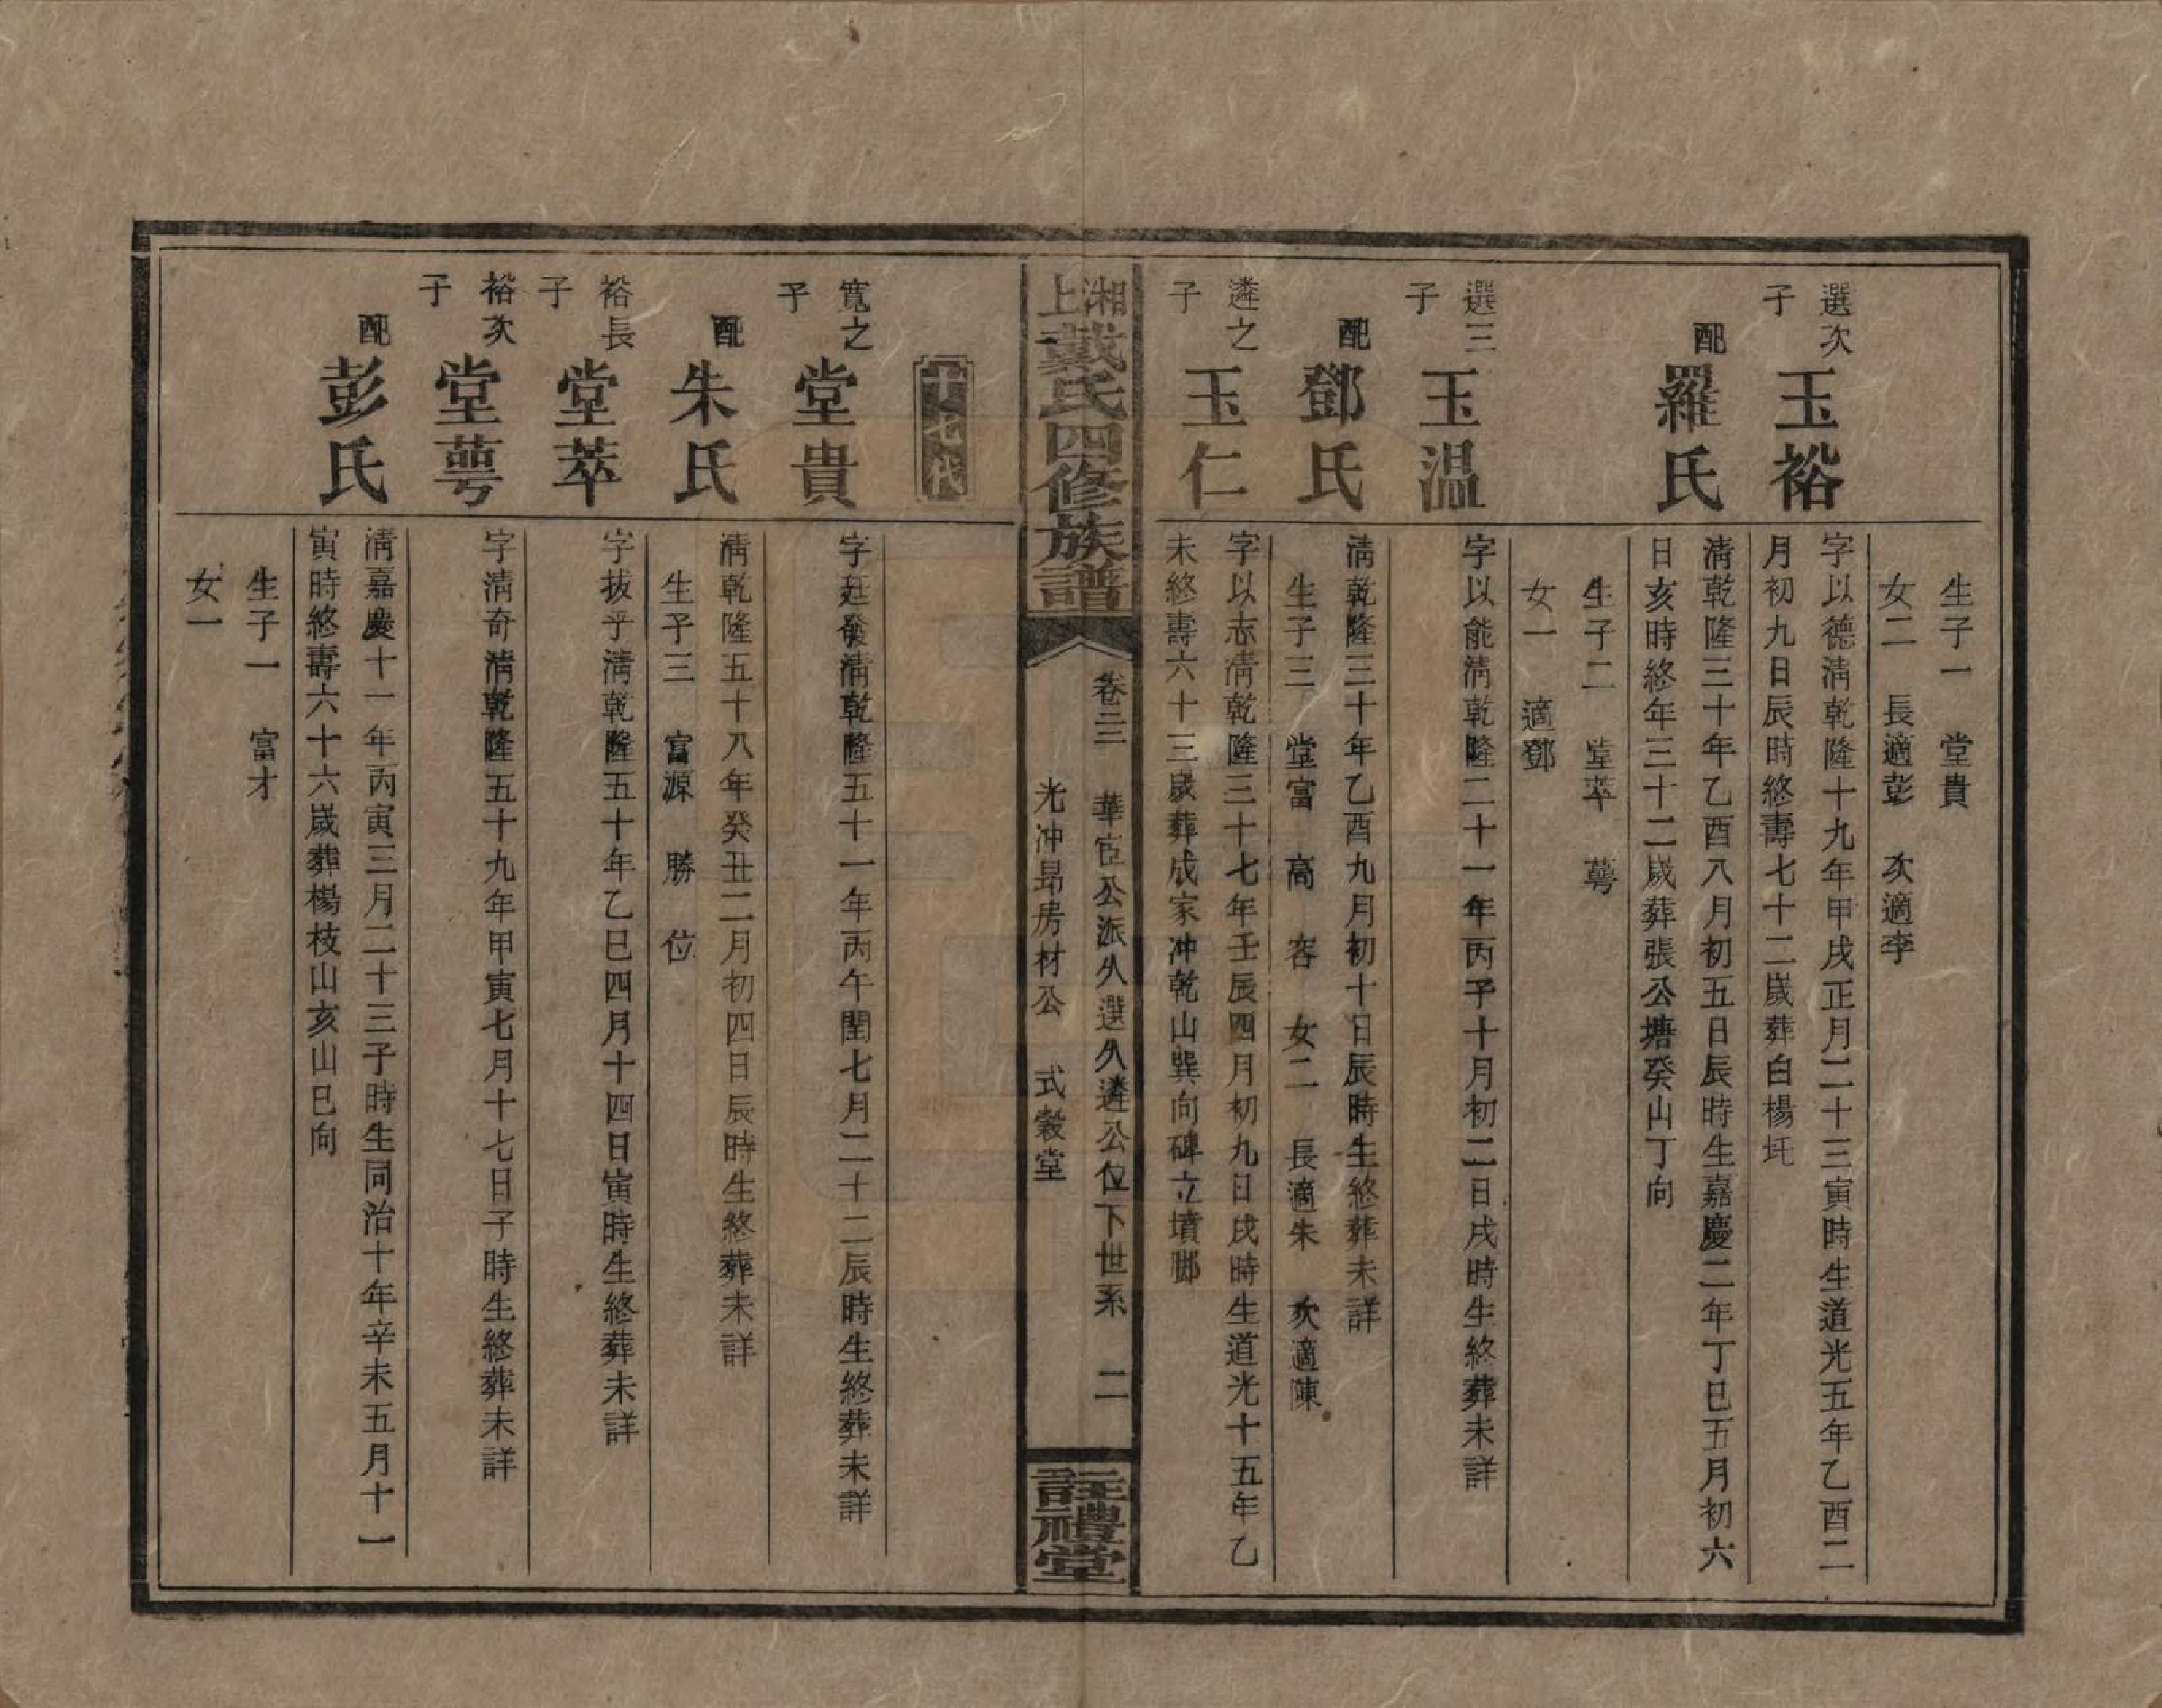 生子一　堂貴
女二　長適彭　次適李
選次子
玉裕
字以德淸乾隆十九年甲戌正月二十三寅時生道光五年乙酉二
月初九日辰時終壽七十二歲葬白楊坃
配
羅氏
淸乾隆三十年乙酉八月初五日辰時生嘉慶二年丁巳五月初六
日亥時終年三十二歲葬張公塘癸山丁向
生子二　堂萃　蕚
女一　適鄧
選三子
玉溫
字以能淸乾隆二十一年丙子十月初二日戌時生終葬未詳
配
鄧氏
淸乾隆三十年乙酉九月初十日辰時生終葬未詳
生子三　堂富　高　容　女二　長適朱　次適陳
遴之子
玉仁
字以志淸乾隆三十七年壬辰四月初九日戌時生道光十五年乙
未終壽六十三歲葬成家冲乾山巽向碑立墳腳
湘上戴氏四修族譜
卷三　華宦公派久選久遴公位下世系　二
光冲昻房材公　式穀堂
註禮堂
十七代
寬之子
堂貴
字廷發淸乾隆五十一年丙午閏七月二十二辰時生終葬未詳
配
朱氏
淸乾隆五十八年癸丑二月初四日辰時生終葬未詳
生子三　富源　勝　位
裕長子
堂萃
字拔乎淸乾隆五十年乙巳四月十四日寅時生終葬未詳
裕次子
堂蕚
字淸奇淸乾隆五十九年甲寅七月十七日子時生終葬未詳
配
彭氏
淸嘉慶十一年丙寅三月二十三子時生同治十年辛未五月十一
寅時終壽六十六歲葬楊枝山亥山巳向
生子一　富才
女一